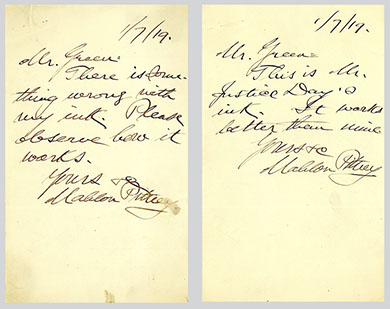 1/7/19.
Mr. Green:
There is some-
thing wrong with
my ink. Please
observe how it
works.
Yours &c
Mahlon Pitney
1/7/19.
Mr. Green=
This is Mr.
Justice Day's
ink. It works
better than mine
Yours &c
Mahlon Pitney